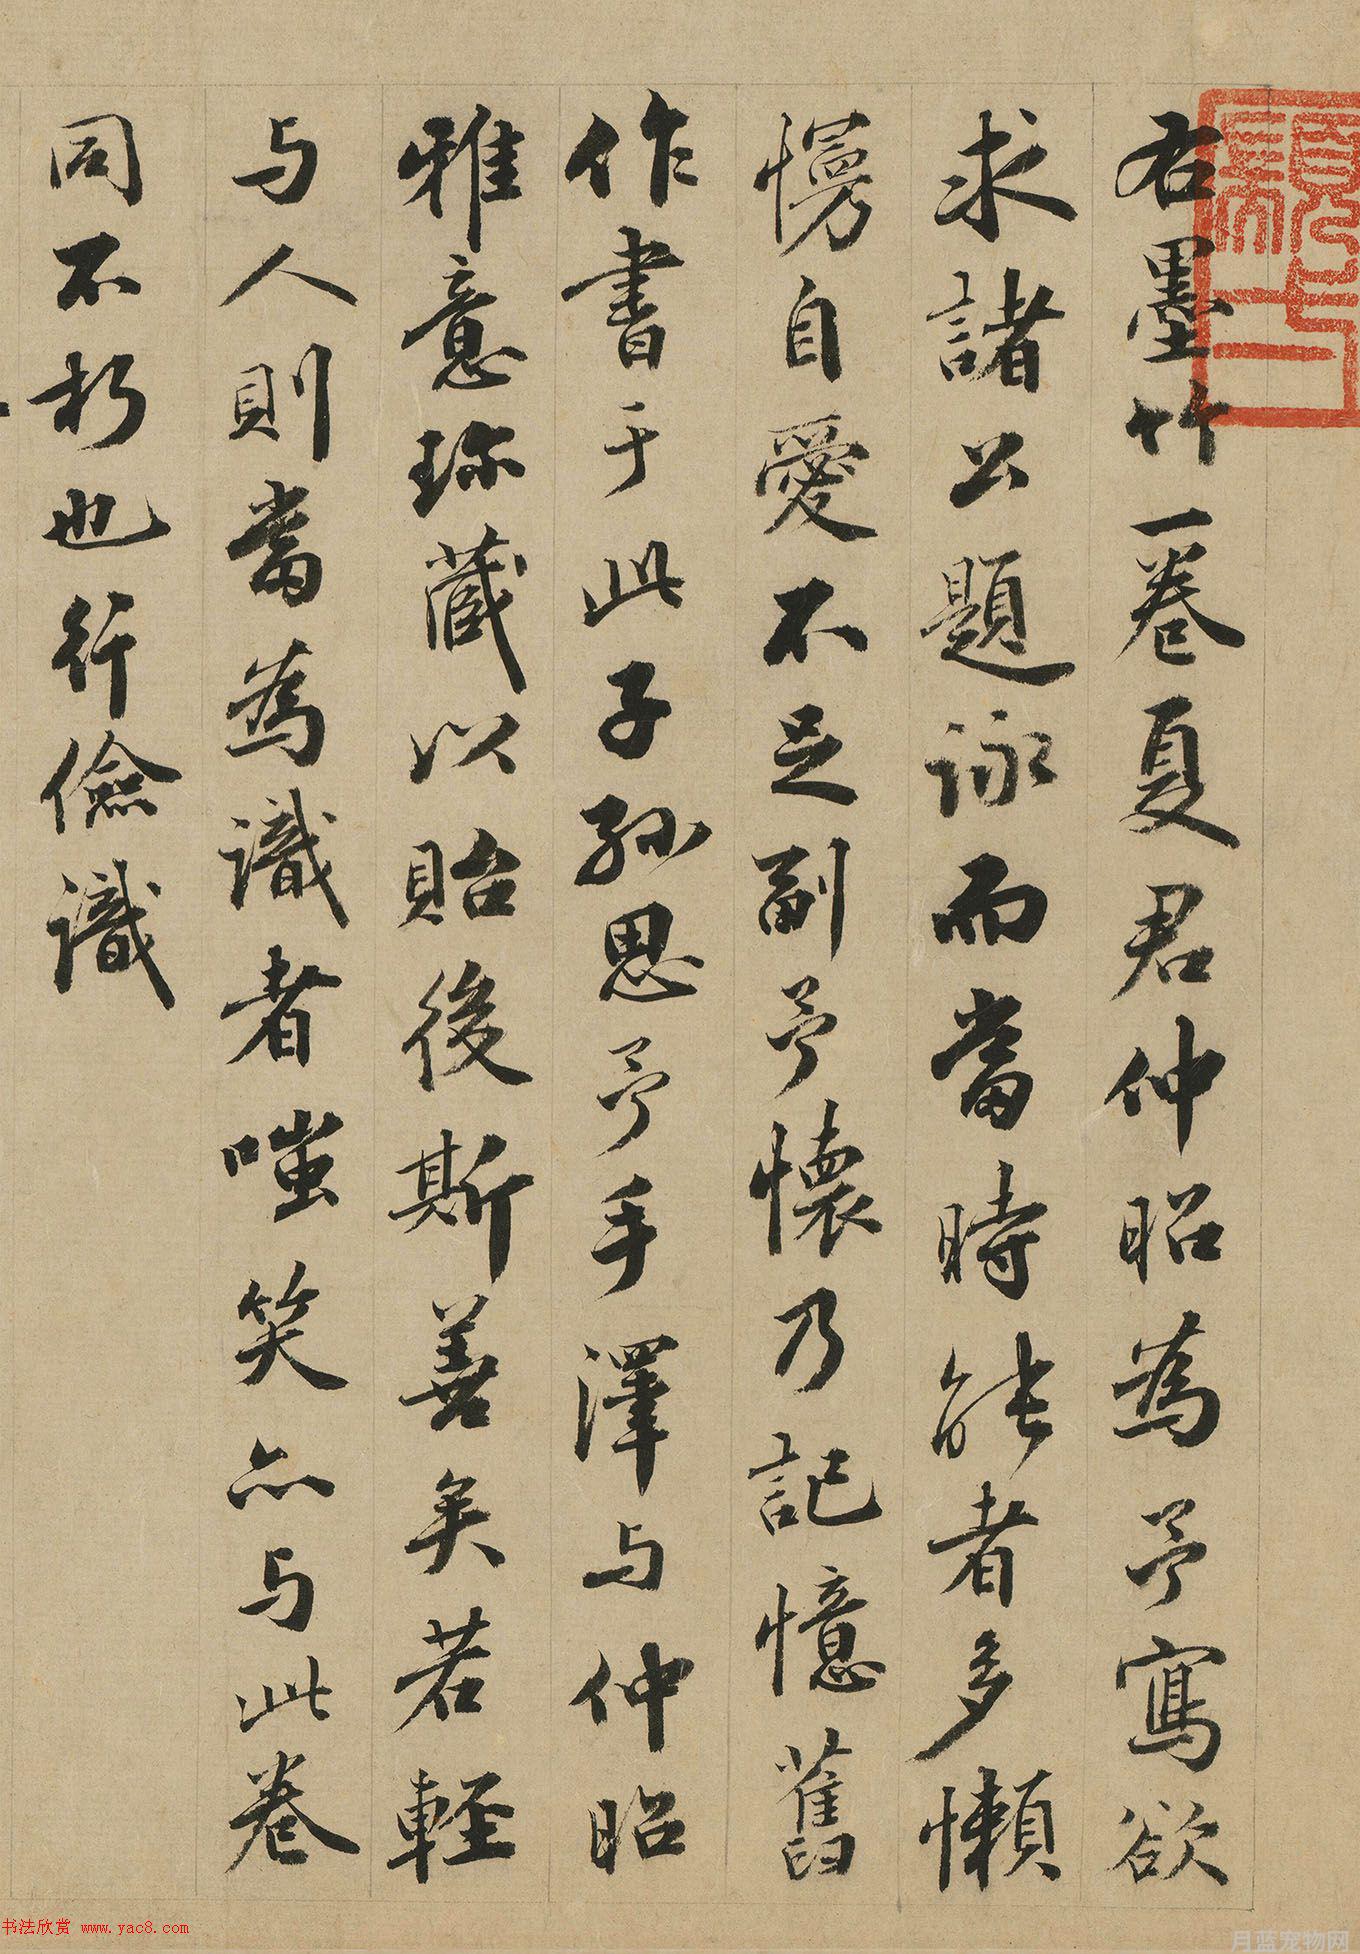 右墨竹一卷夏君仲昭為予寫欲
求諸公題詠而當時能者多懶
慢自愛不足副予懷乃記憶舊
作書于此子孫思予手澤与仲昭
雅意珎藏以貽後斯善矣若輕
与人則當為識者嗤笑亦与此卷
同不朽也行儉識
书法欣赏 www.yac8.com
月蓝宠物网